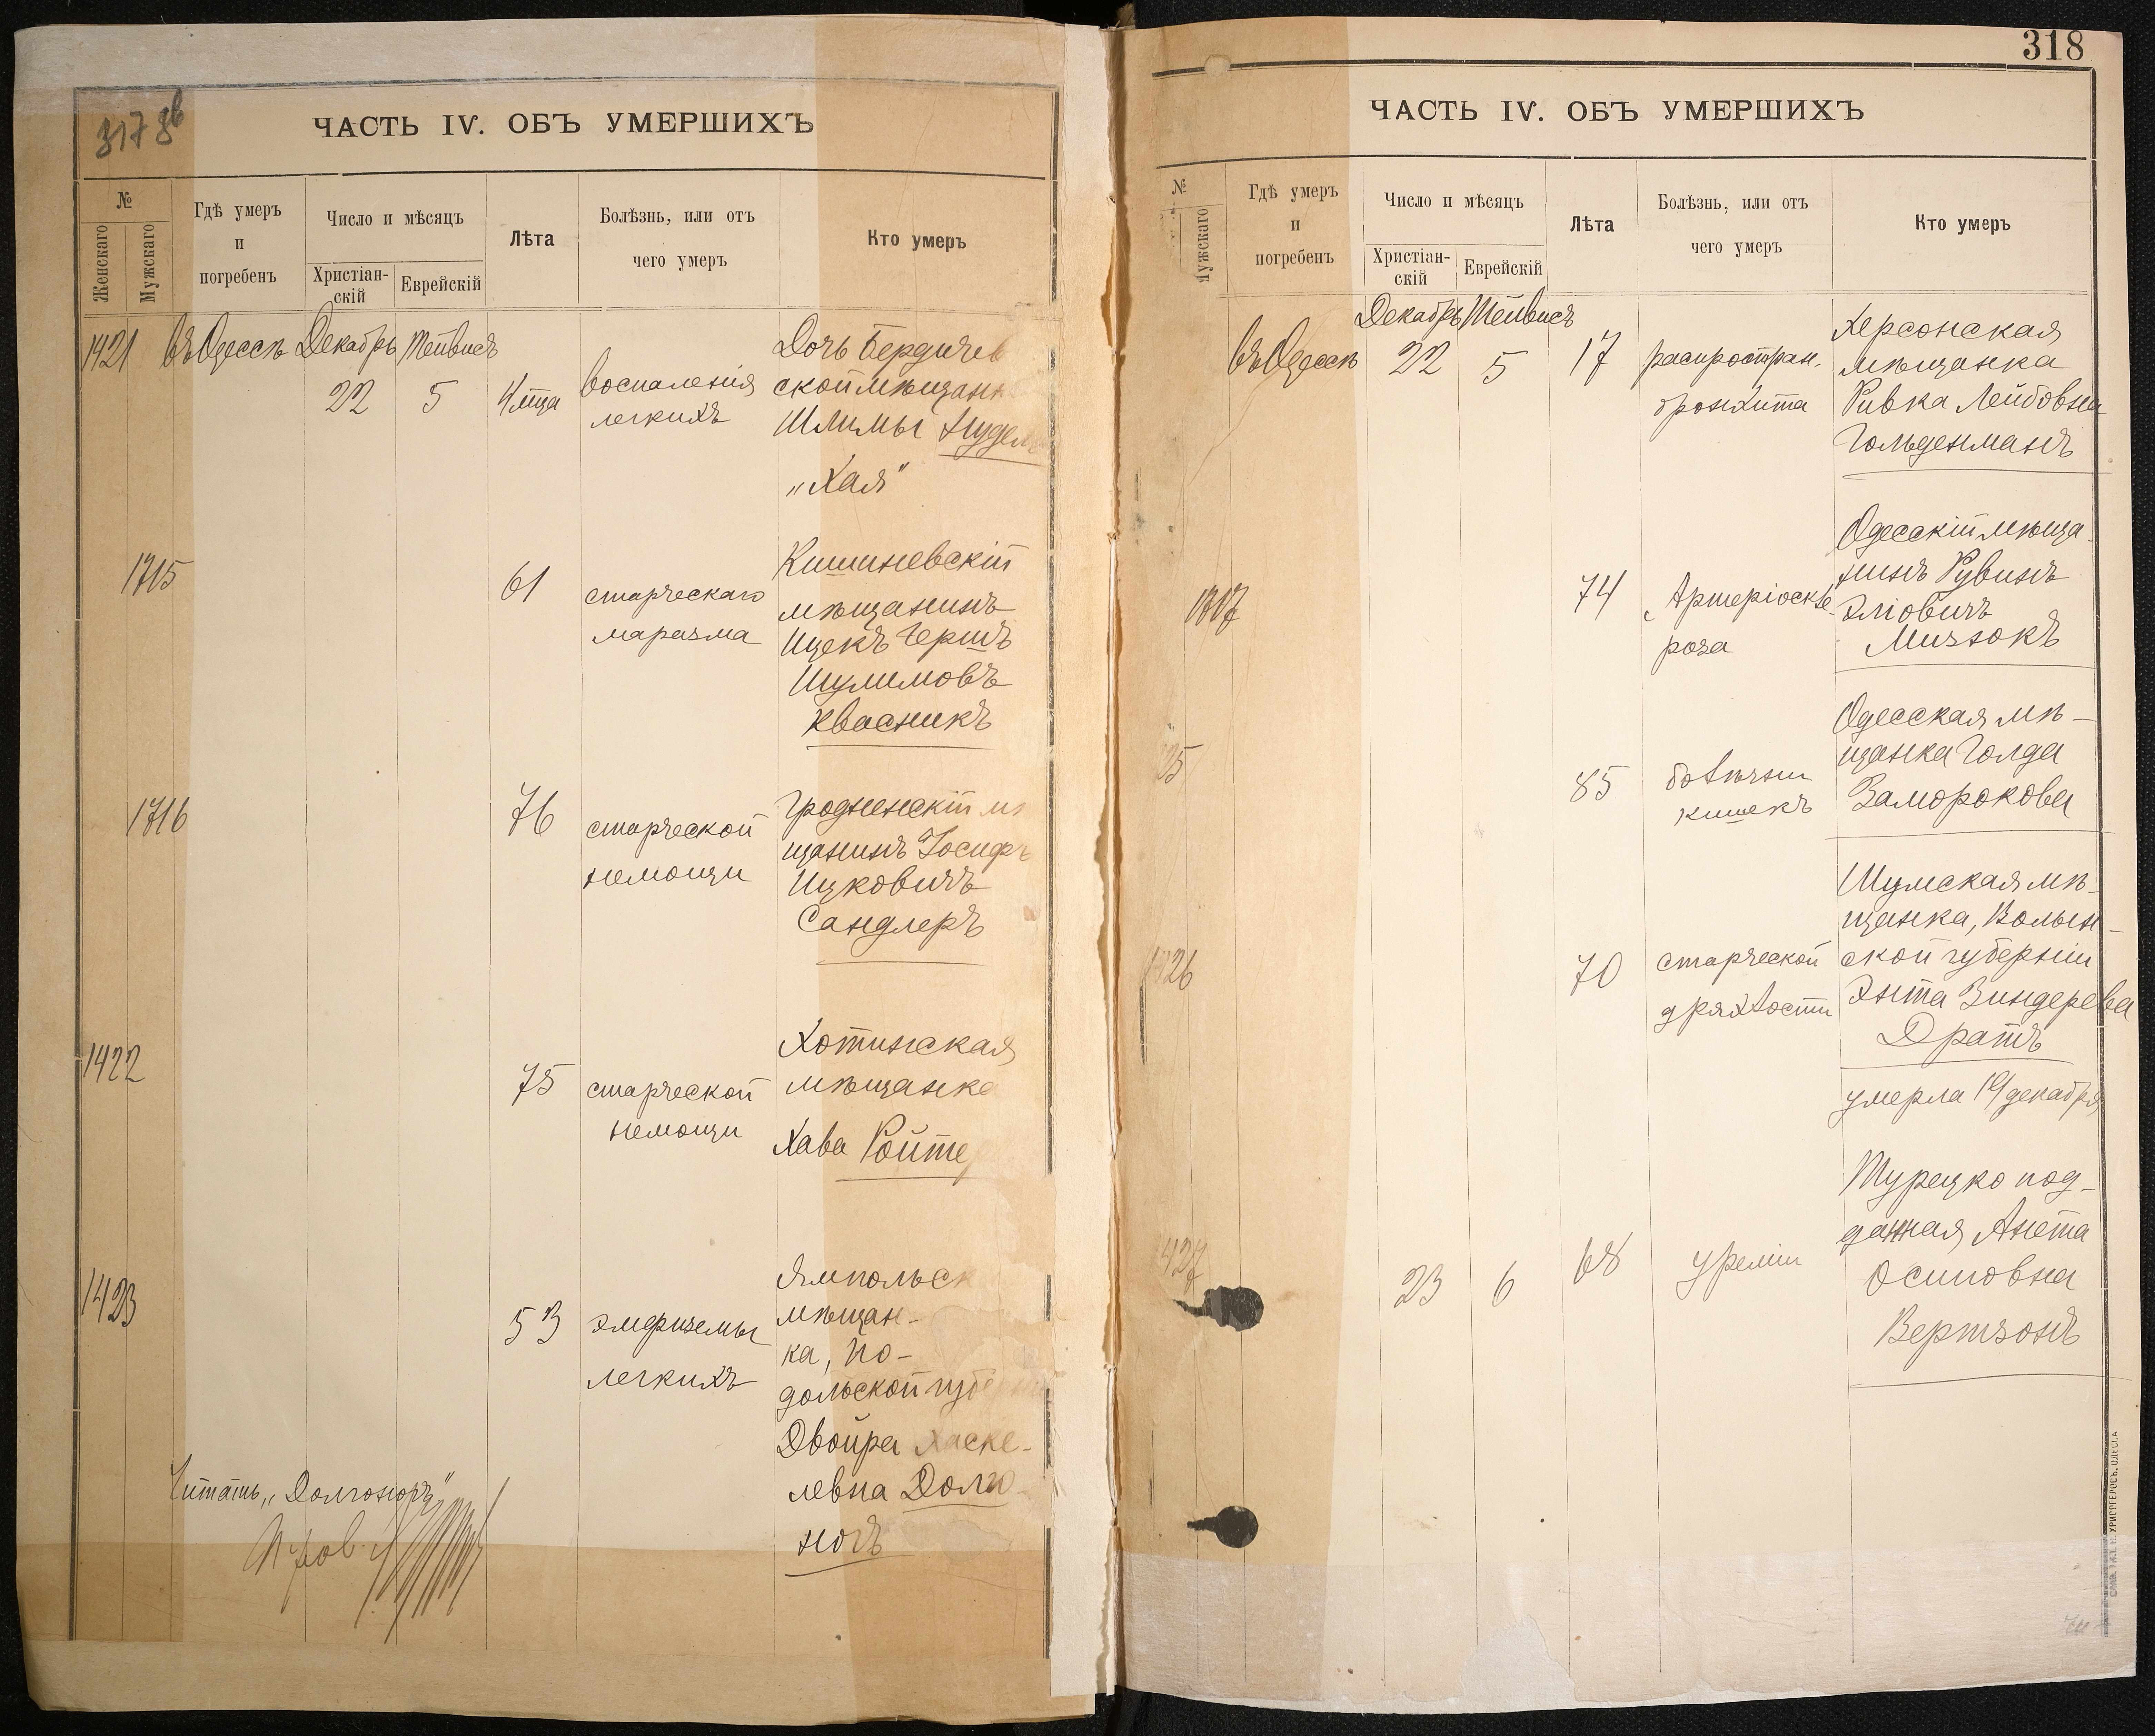 ЧАСТЬ IV. ОБЪ УМЕРШИХЪ
№
Женскаго
Мужскаго
Гдѣ умеръ
и
погребенъ
Число и мѣсяцъ
Христіан-
скій
Еврейскій
Лѣта
Болѣзнь, или отъ
чего умеръ
Кто умеръ
1421 въ Одессѣ Декабрь Тейвисъ
22 5
воспаленія
легкихъ
Дочь Бердичев
ской мѣщанк
Шлимы Нудел
"Хая"
1715
61
старческаго
маразма
Кишиневскій
мѣщанинъ
Ицекъ Гершъ
Шулимовъ
Квасникъ
1716
76
старческой
немощи
Гродненскій мѣ
щанинъ Іосифъ
Ицковичъ
Сандлеръ
1422
75
старческой
немощи
Хотинская
мѣщанка
Хава Ройте
1423
53
эмфиземы
легкихъ
Ямпольск
мѣщан-
ка, По-
дольской губерніи
Двойра Хаске-
левна Долго-
ногъ
Читать "Долгоногъ"
318
ЧАСТЬ IV. ОБЪ УМЕРШИХЪ
№
Мужскаго
Гдѣ умеръ
и
погребенъ
Число и мѣсяцъ
Христіан-
скій
Еврейскій
Лѣта
Болѣзнь, или отъ
чего умеръ
Кто умеръ
Декабрь Тейвисъ
въ Одессѣ 22 5 17
распростран.
бронхита
Херсонская
мѣщанка
Ривка Лейбовна
Гольденманъ
1717
74
Артеріоскле-
роза
Одесскій мѣща-
нинъ Рувинъ
Эліовичъ
Мизнокъ
25
85
болѣзни
кишекъ
Одесская мѣ-
щанка Голда
Заморокова
1426
70
старческой
дряхлости
Шумская мѣ-
щанка, Волын-
ской губерніи
Энта Зиндерева
Дратъ
умерла 19 декабря
1427
23 6 68
уреміи
Турецко под-
данная Анета
Осиповна
Вертзонъ